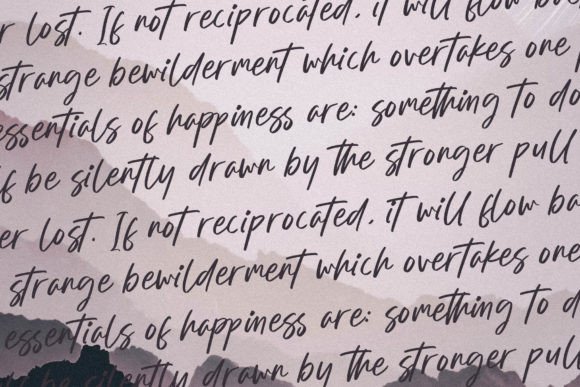 er lost. If not reciprocated, it will flow ba
strange bewilderment which overtakes one
essentials of happiness are: something to do
f be silently drawn by the stronger pull
er lost. If not reciprocated, it will flow ba
strange bewilderment which overtakes one
essentials of happiness are: something to d
be silently drawn by the stronger pull